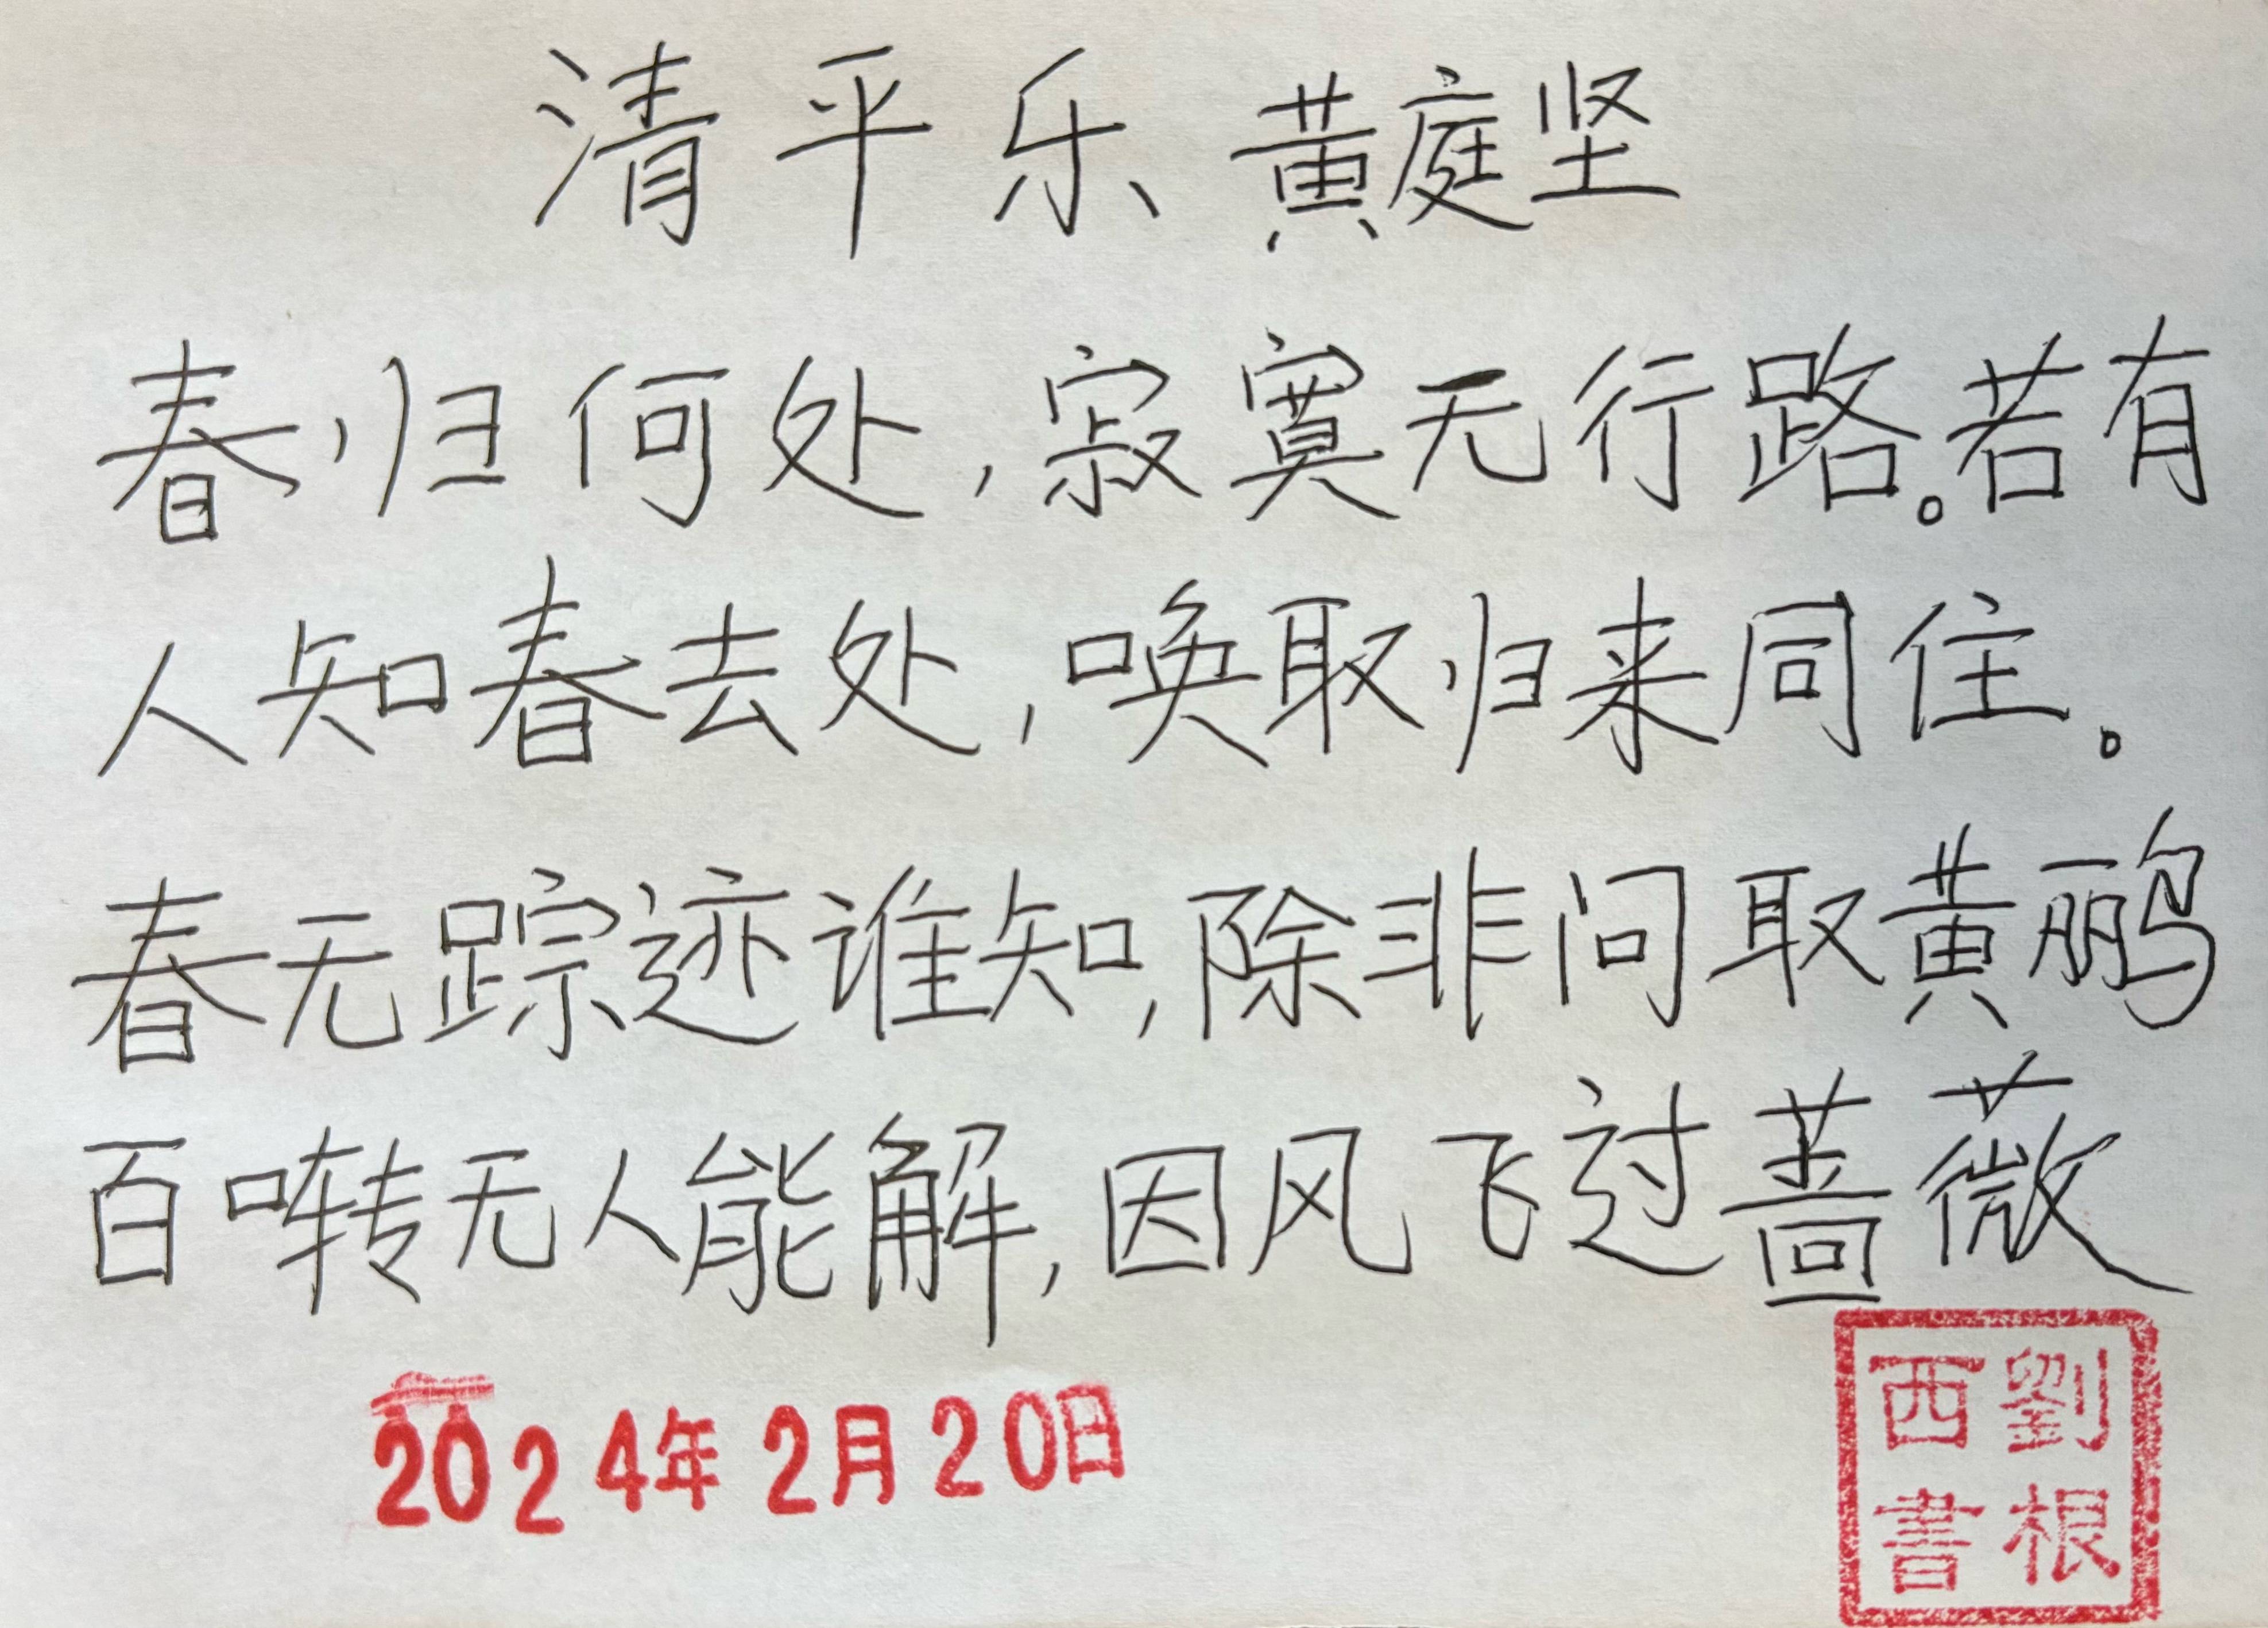 清平乐 黄庭坚
春归何处，寂寞无行路。若有
人知春去处，唤取归来同住。
春无踪迹谁知，除非问取黄鹂
百啭无人能解，因风飞过蔷薇
2024年2月20日
劉根
西書